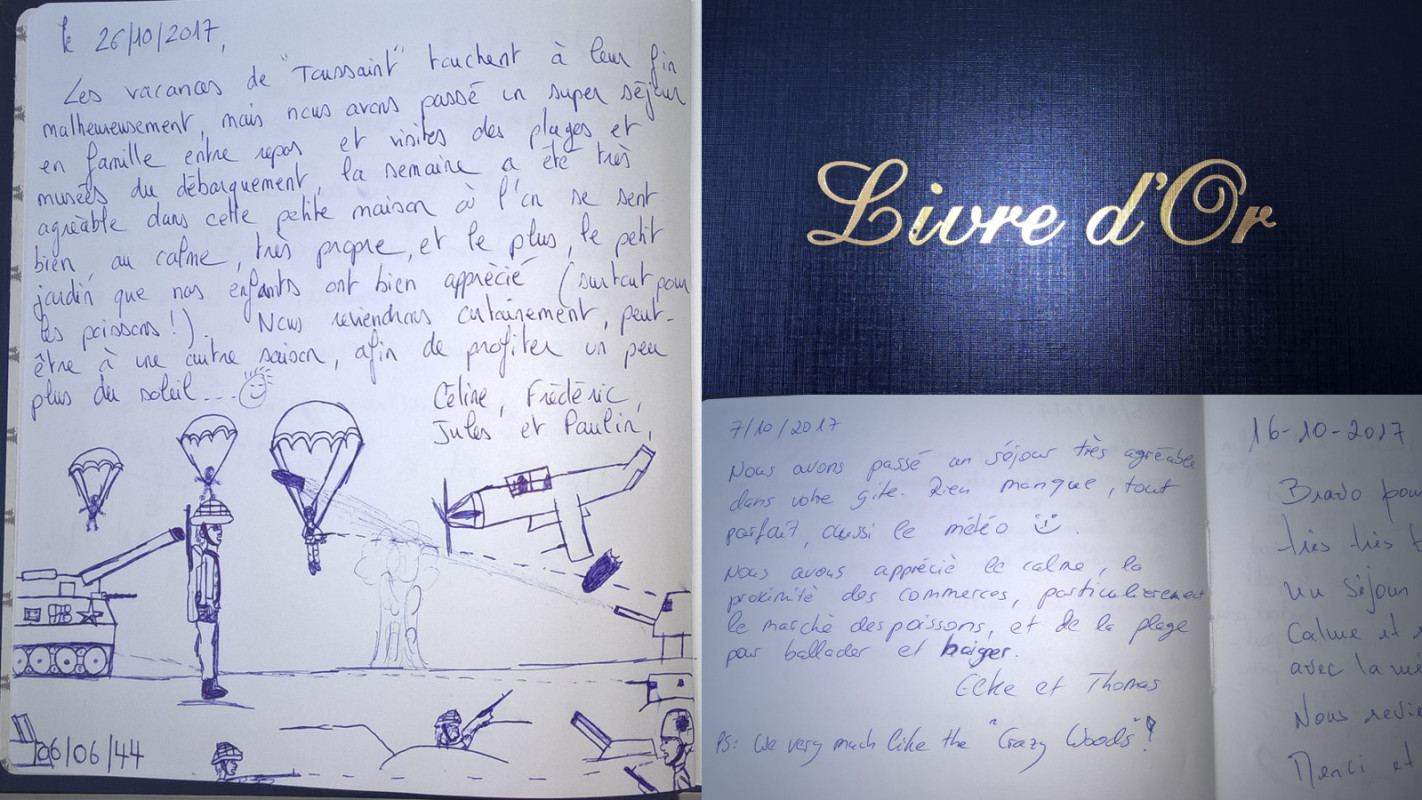 le 26/10/2017,
Les vacances de "Toussaint" touchent à leur fin
malheureusement, mais nous avons passé un super séjour
en famille entre repos et visites des plages et
musées du débarquement, la semaine a été très
agréable dans cette petite maison où l'on se sent
bien, au calme, très propre, et le plus, le petit
jardin que nos enfants ont bien apprécié (surtout pour
les poissons!). Nous reviendrons certainement, peut-
être à une autre saison, afin de profiter un peu
plus du soleil...
Céline, Frédéric,
Jules et Paulin,
06/06/44
Livre d'Or
7/10/2017
Nous avons passé un séjour très agréable
dans votre gite. Rien manque, tout
parfait, aussi le météo
Nous avons apprécié le calme, la
proximité des commerces, particulièrement
le marché des poissons, et de la plage
pour ballader et baiger.
Elke et Thomas
PS: We very much like the "Crazy Woods"!
16-10-2017
Bravo
très très
un séjour
Calme et
avec la
Nous
Merci et